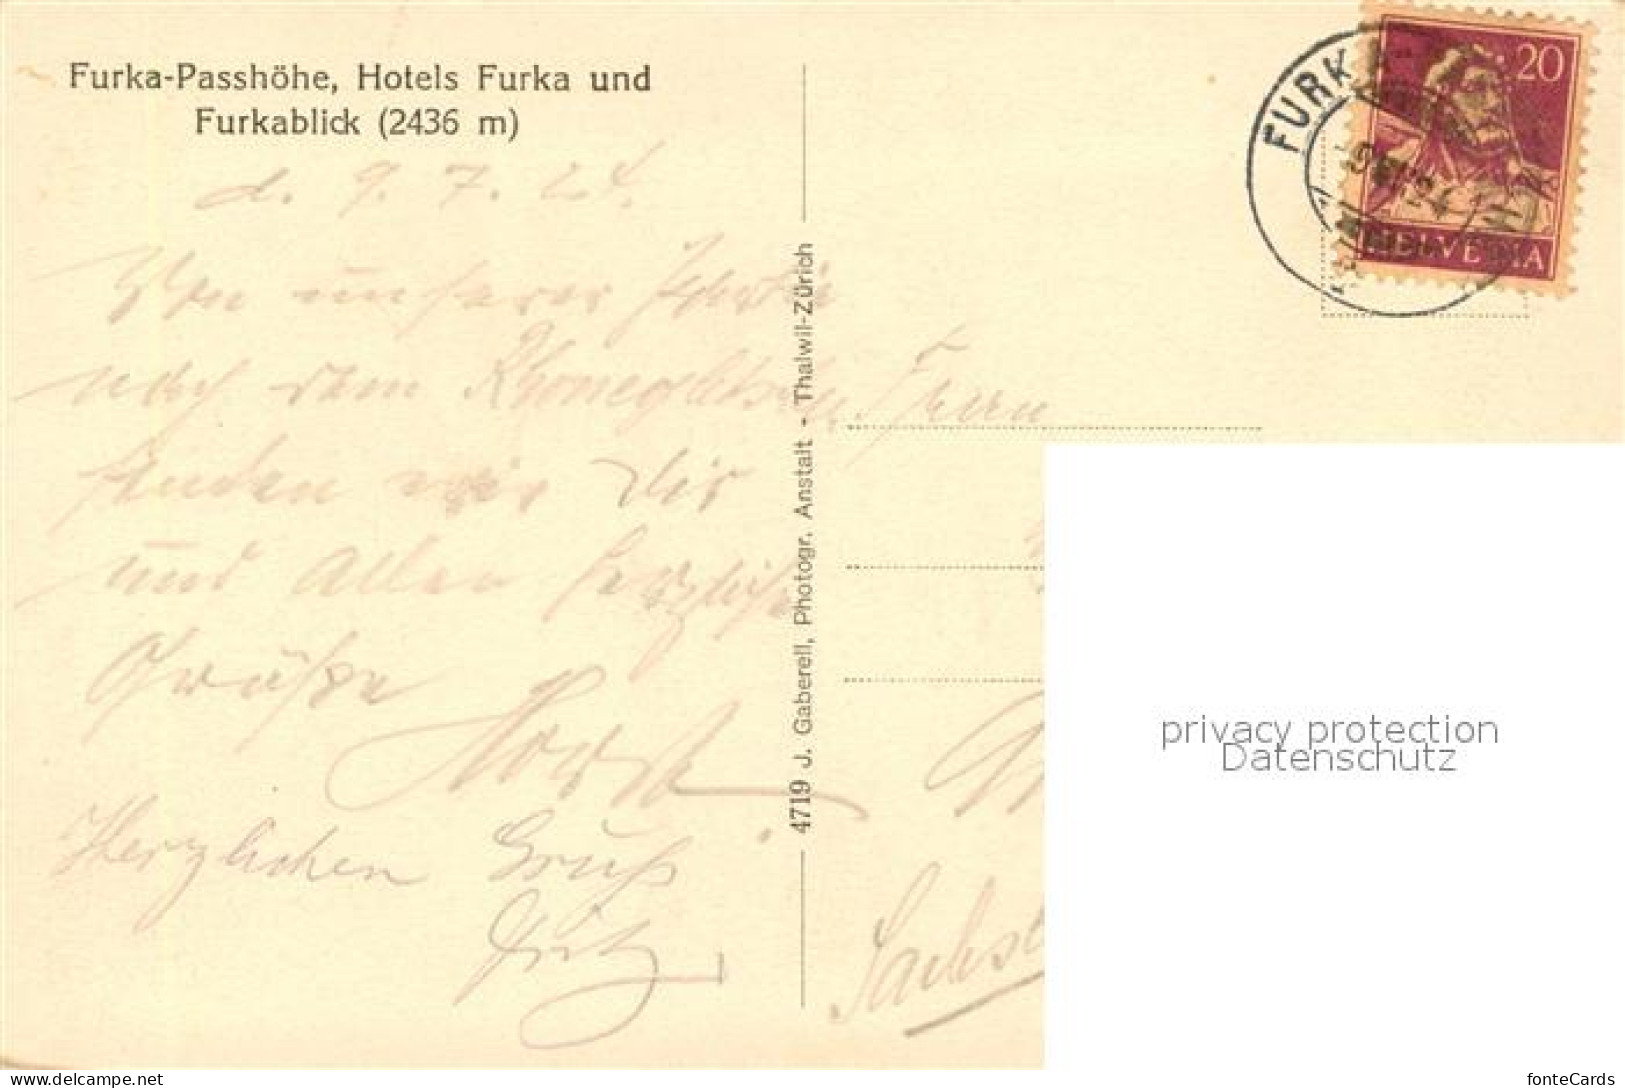 Furka-Passhöhe, Hotels Furka und
Furkablick (2436 m)
d. 9. 7. 24.
Von unserer Partie
nach dem Rhonegletscher
senden wir Dir
und Allen herzliche
Grüße
Horst
Herzlichen Gruß
Fritz
4719 J. Gaberell, Photogr. Anstalt - Thalwil-Zürich
Herrn
Sachs
FURKA
20
HELVETIA
privacy protection
Datenschutz
www.delcampe.net
fonteCards